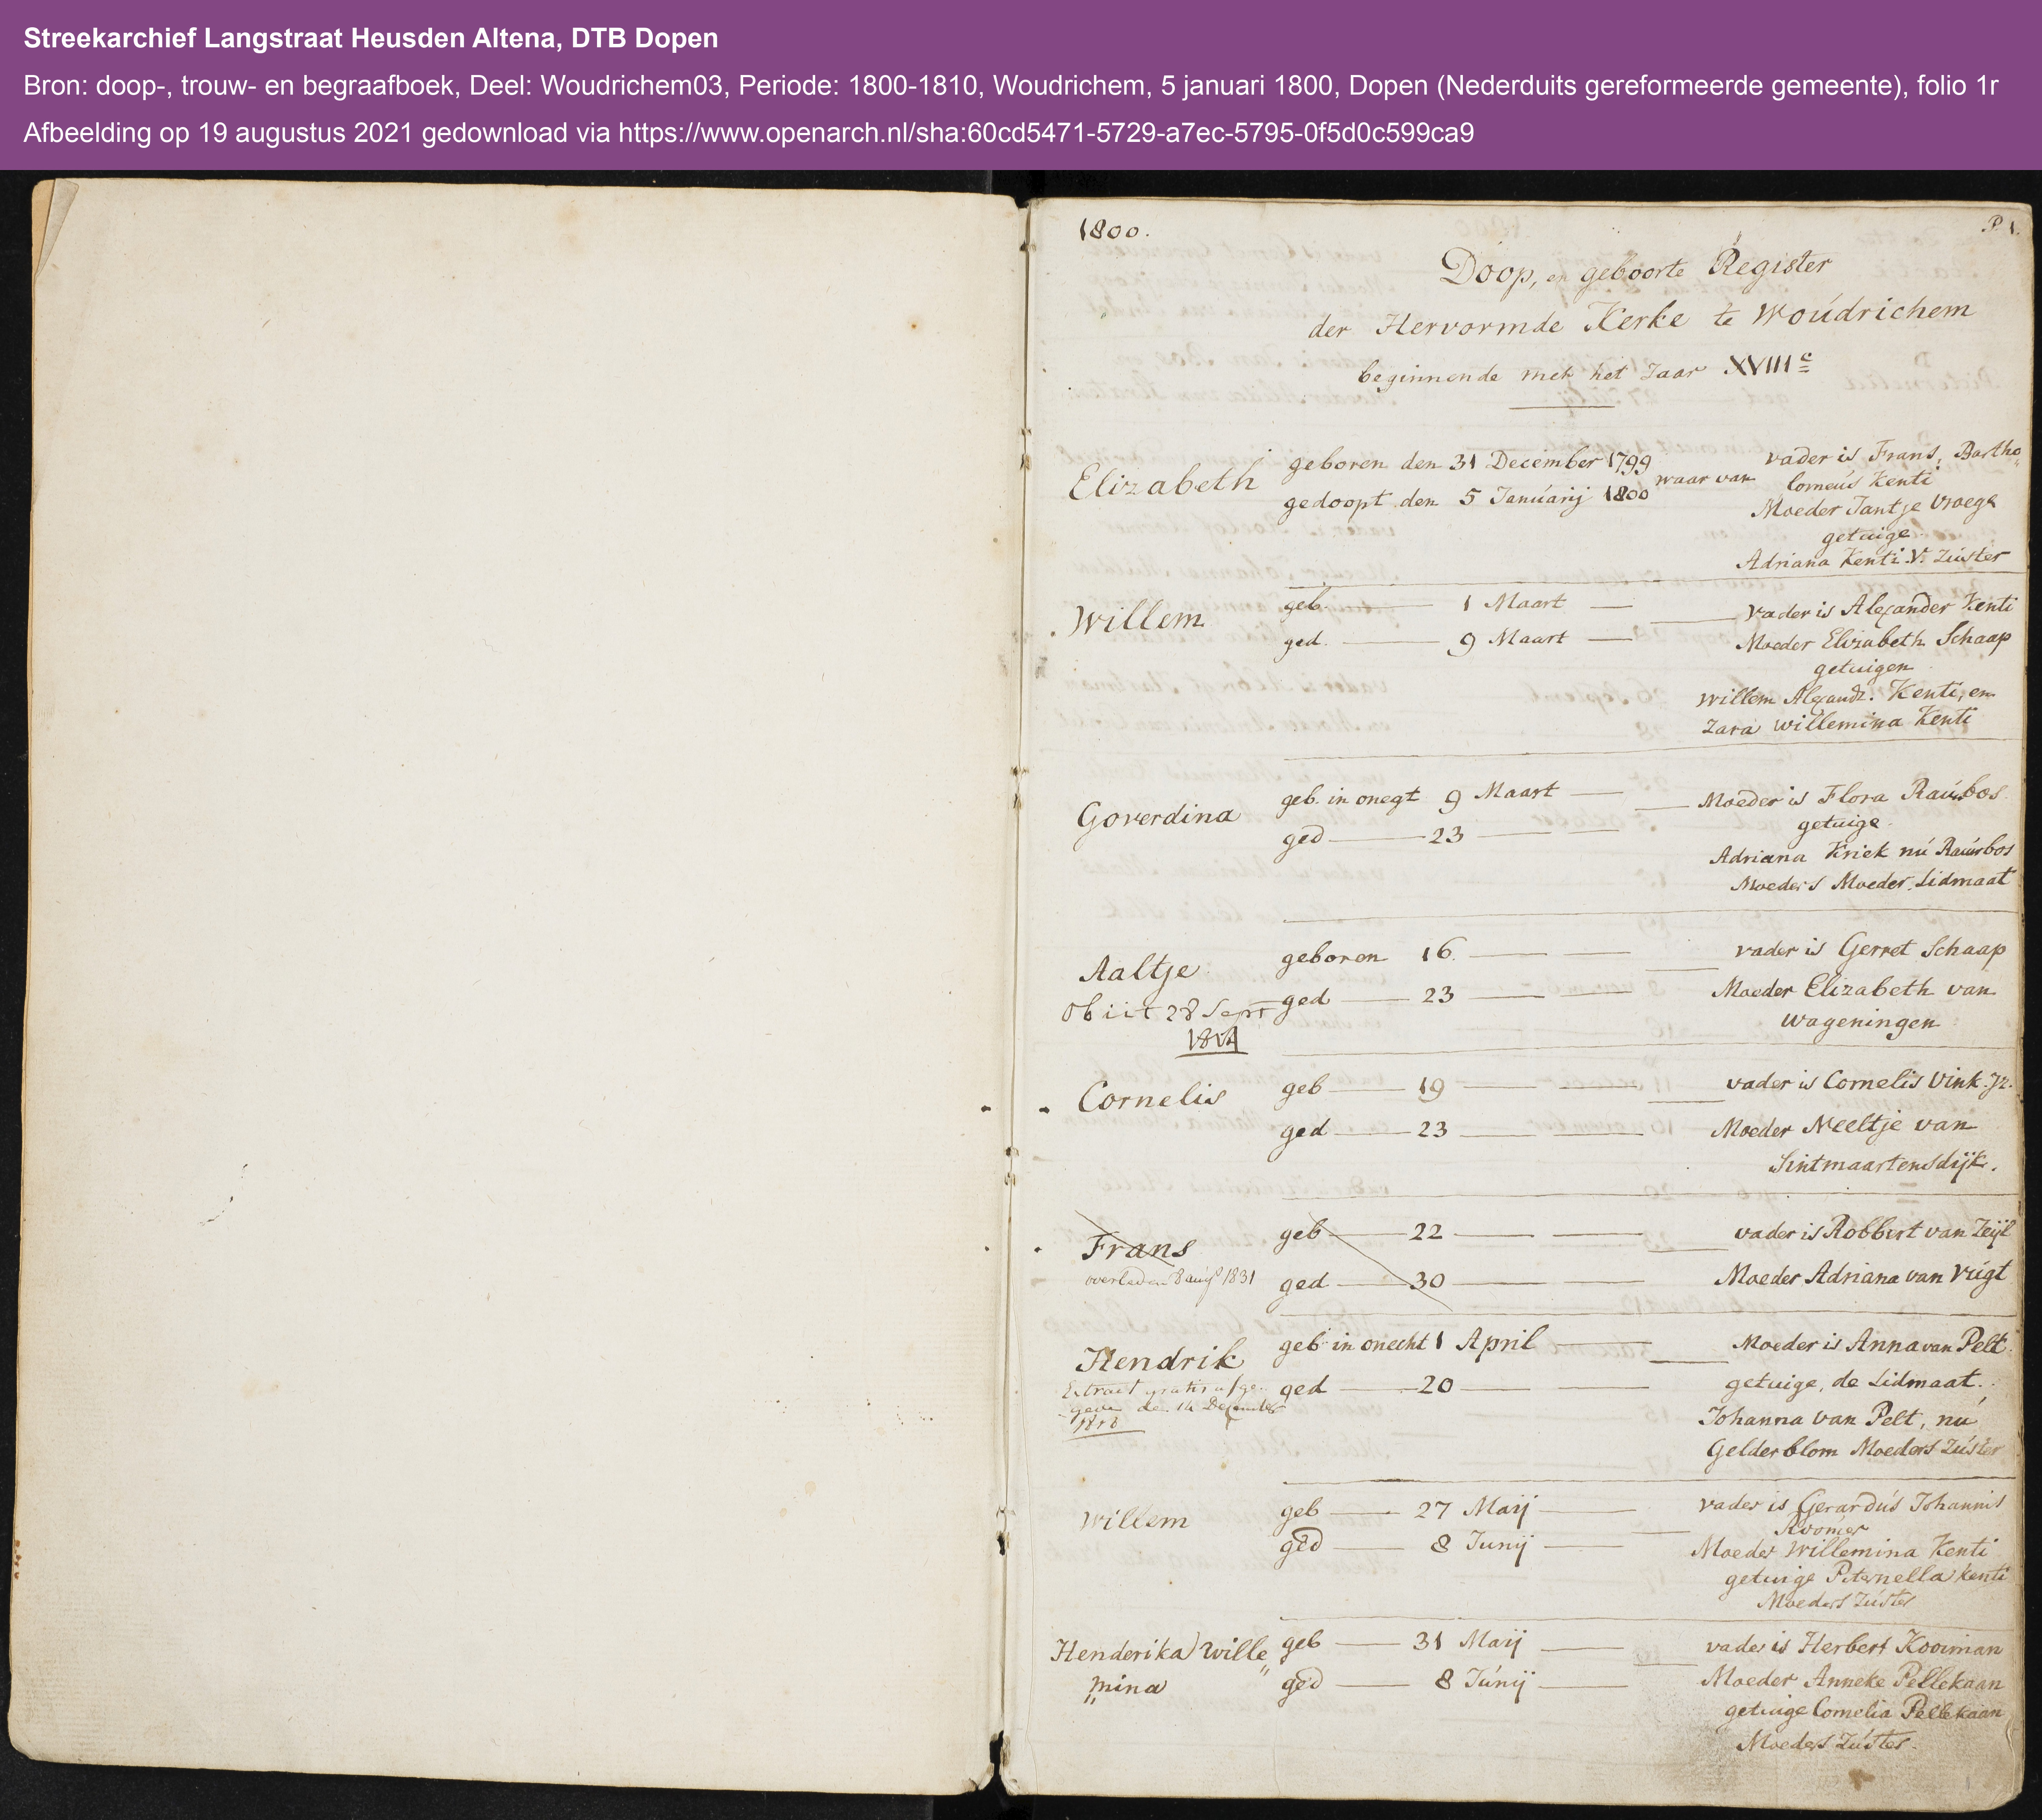 Streekarchief Langstraat Heusden Altena, DTB Dopen
Bron: doop-, trouw- en begraafboek, Deel: Woudrichem03, Periode: 1800-1810, Woudrichem, 5 januari 1800, Dopen (Nederduits gereformeerde gemeente), folio 1r
Afbeelding op 19 augustus 2021 gedownload via https://www.openarch.nl/sha:60cd5471-5729-a7ec-5795-0f5d0c599ca9
1800. P. 1.
Doop, en geboorte Register
der Hervormde Kerke te Woúdrichem
beginnende met het Jaar XVIIIc
Elizabeth geboren den 31 December 1799 waar van vader is Frans, Bartho„
gedoopt den 5 Janúarij 1800 lomeús Kenti
Moeder Jantje Vroege
getuige
Adriana Kenti V. Zúster
Willem geb. 1 Maart vader is Alexander Kenti
ged. 9 Maart Moeder Elizabeth Schaap
getuigen
Willem Alexandr. Kenti, en
Zara Willemina Kenti
Goverdina geb. in onegt 9 Maart Moeder is Flora Raúsbos
ged 23 getuige
Adriana Kriek nú Raúsbos
Moeders Moeder, Lidmaat
Aaltje geboren 16. vader is Gerret Schaap
Obiit 28 Sept ged 23 Moeder Elizabeth van
Wageningen
Cornelis geb 19 vader is Cornelis Vink Jz.
ged 23 Moeder Neeltje van
Sintmaartensdijk.
Frans geb 22 vader is Robbert van Zeijl
overleden 8 aúg 1831 ged 30 Moeder Adriana van Vúgt
Hendrik geb in onecht 1 April Moeder is Anna van Pelt
Extract gratis afge ged 20 getuige, de Lidmaat.
geven den 14 December Johanna van Pelt, nú
1818 Gelderblom Moeders Zúster
Willem geb 27 Maij vader is Gerardús Johannis
ged 8 Junij
Moeder Willemina Kenti
getuige Peternella Kenti
Moeders Zúster
Henderika Wille„ geb 31 Maij vader is Herbert Kooiman
„mina ged 8 Júnij Moeder Anneke Pellekaan
getuige Cornelia Pellekaan
Moeders Zúster.